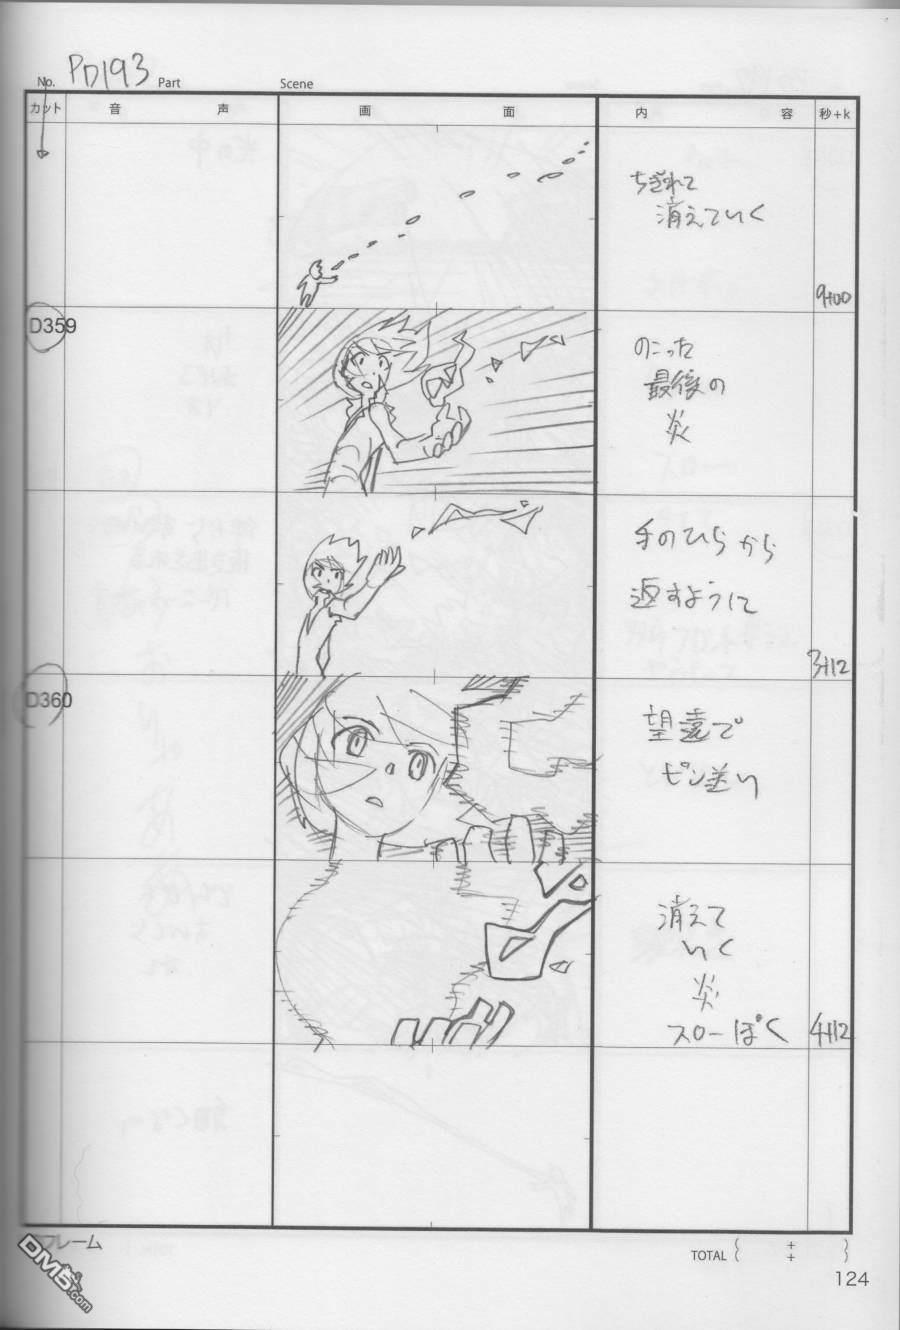 No. PD193 Part Scene
カット 音 声 画 面 内 容 秒+k
ちぎれて
消えていく
9+00
D359
のこった
最後の
炎
手のひらから
返すように
3+12
D360
望遠で
ピン送り
消えて
いく
炎
スローぽく
4+12
フレーム
TOTAL ( + )
( + )
124
DM5.com